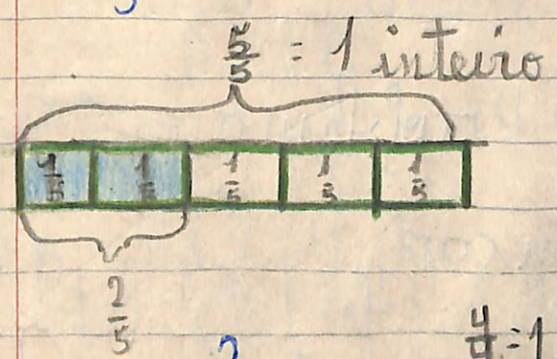 5/5 = 1 inteiro
1/5 1/5 1/5 1/5 1/5
2/5
4/4 = 1